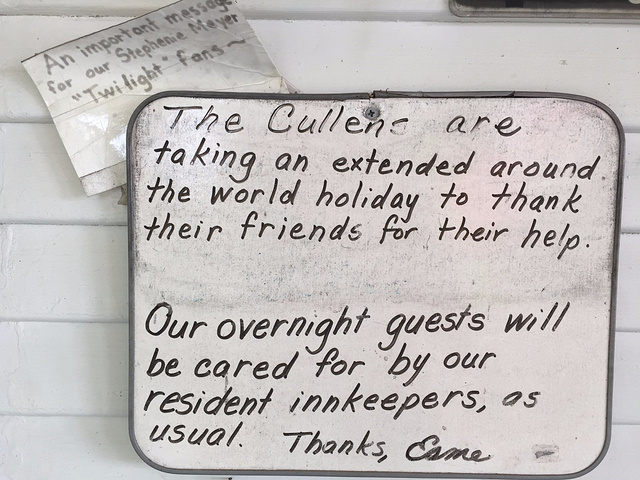 An important message
for our Stephenie Meyer
"Twilight" fans~
The Cullens are
taking an extended around
the world holiday to thank
their friends for their help.
Our overnight guests will
be cared for by our
resident innkeepers, as
usual. Thanks, Esme